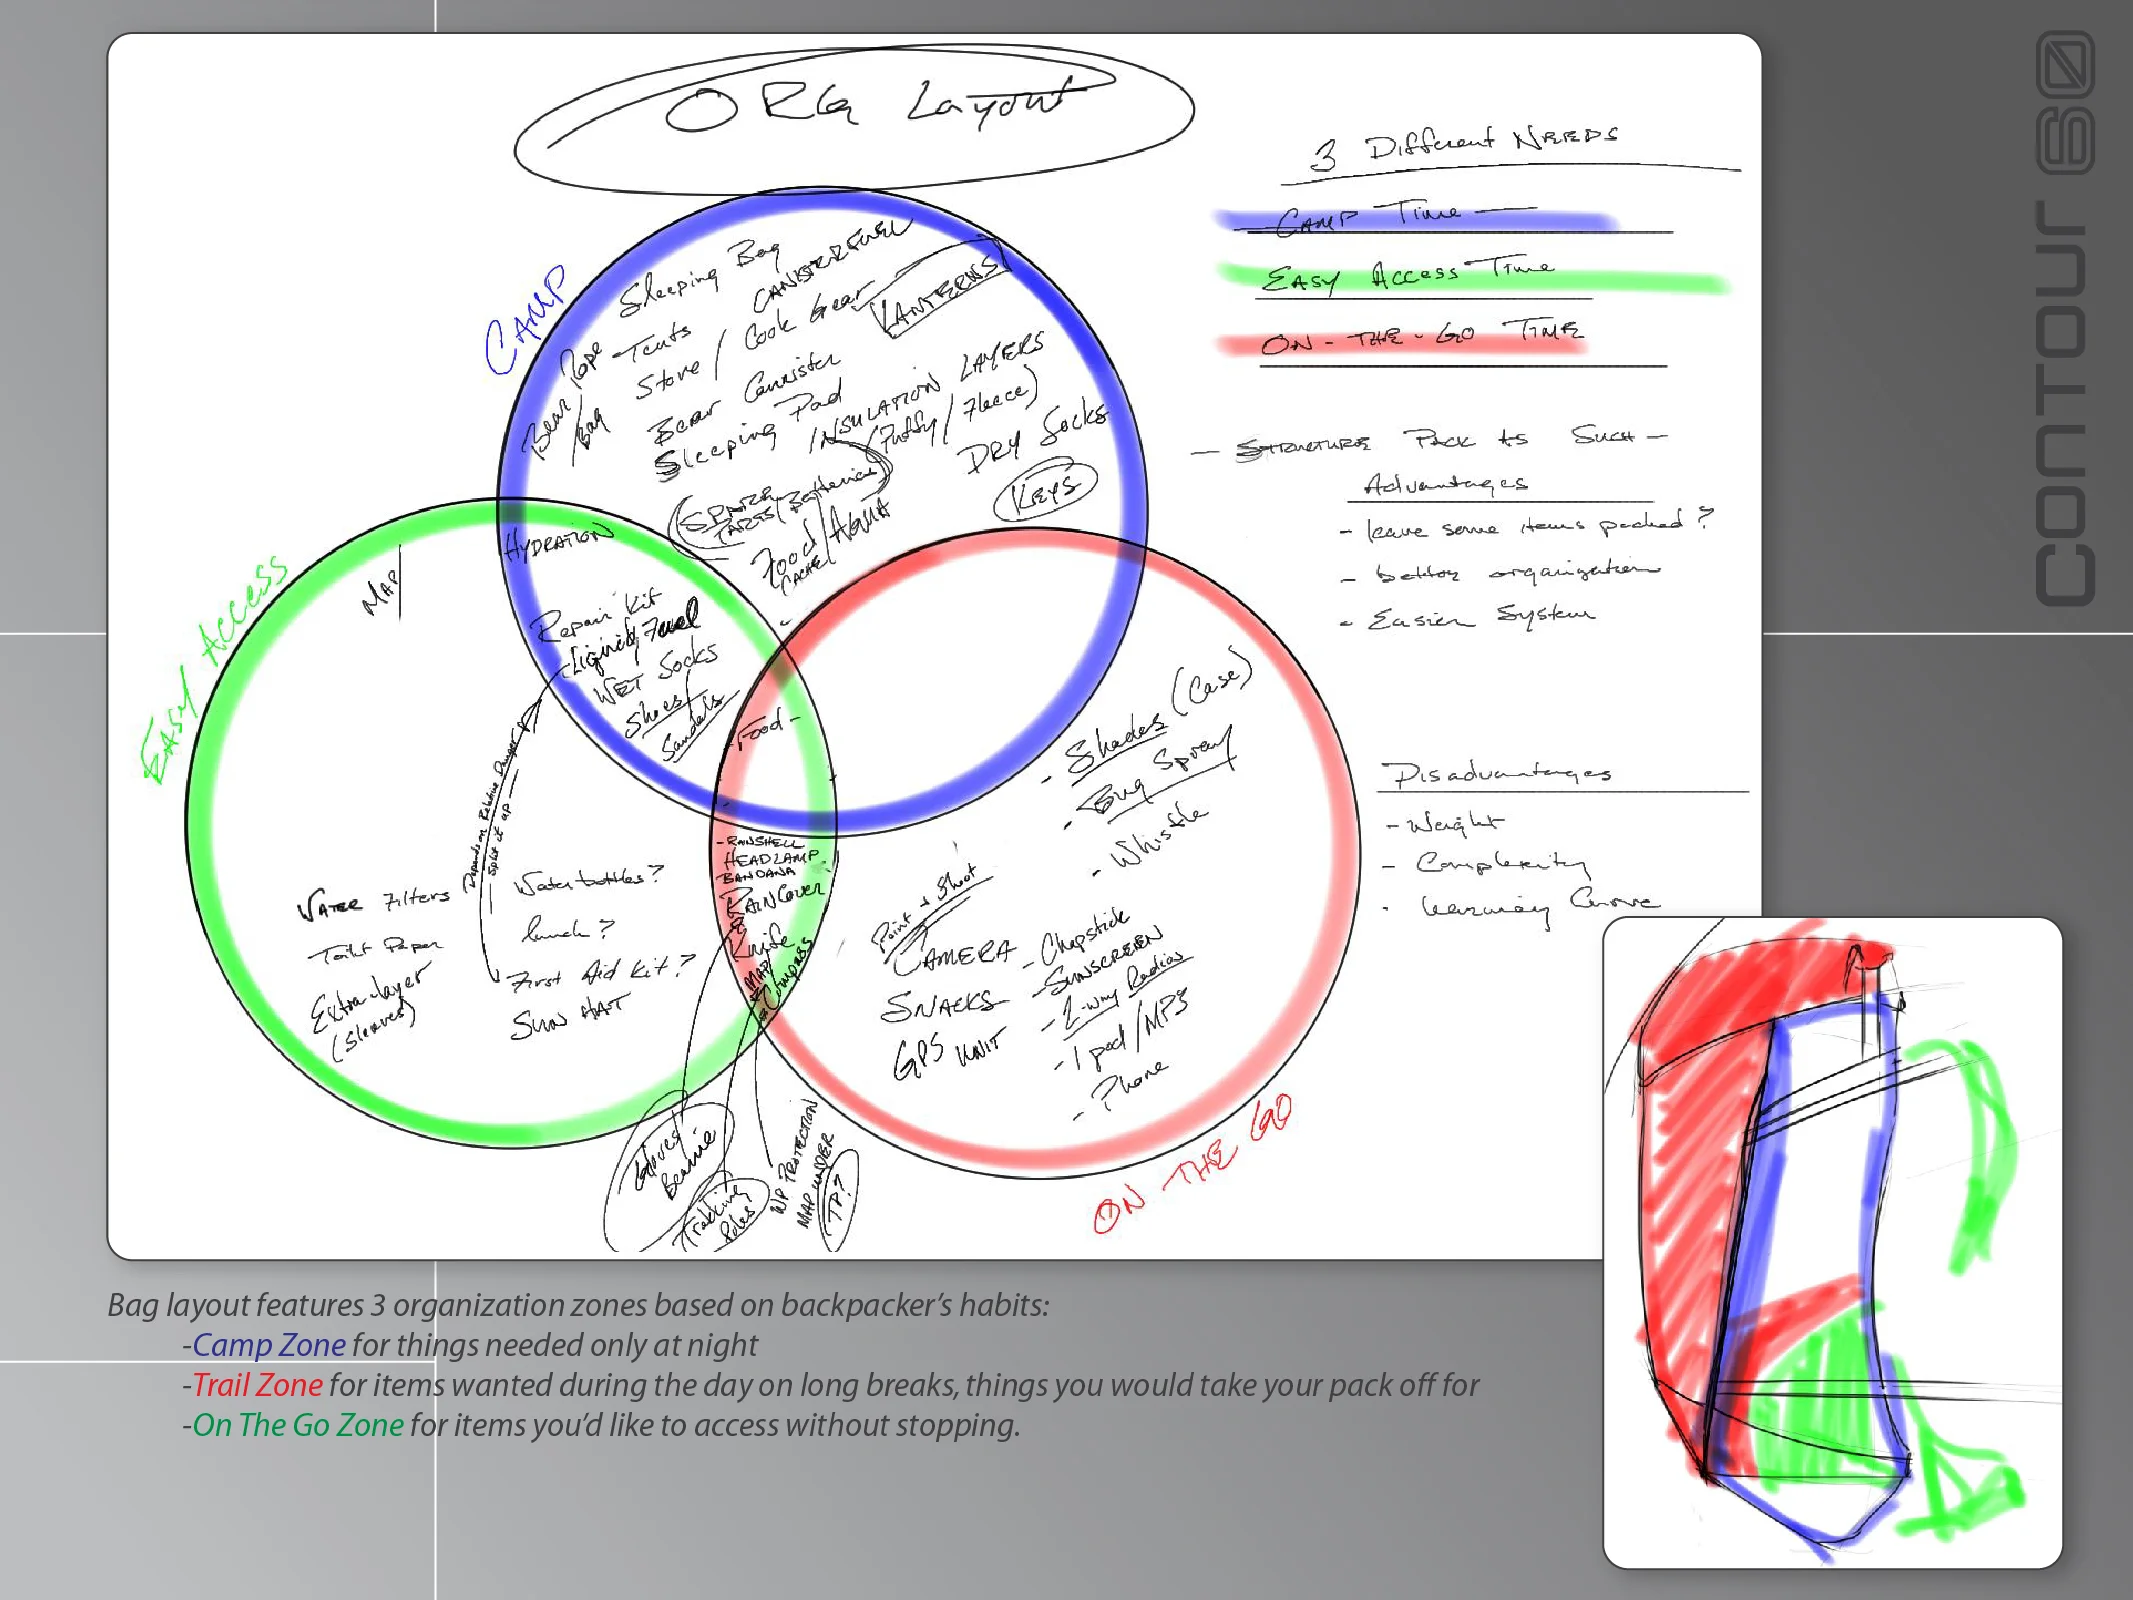 ORG Layout
3 Different NEEDS
CAMP Time —
EASY ACCESS Time
ON-THE-GO TIME
— STRUCTURE PACK AS SUCH —
Advantages
- leave some items packed?
- better organization
- Easier System
Disadvantages
- Weight
- Complexity
- Learning Curve
CAMP
Sleeping Bag
CANISTER FUEL
Tents
Stove / Cook Gear
LANTERNS
Rope
Bear / Bag
Bear Cannister
Sleeping Pad
INSULATION LAYERS
(Puffy / Fleece)
DRY Socks
KEYS
(SPARE
PARTS/Batteries)
Food/AQUA
CACHE
HYDRATION
Repair Kit
Liquid Fuel
WET SOCKS
Shoes/
Sandals
Food -
EASY ACCESS
MAP
Depends on Relative Danger
Split it up
WATER Filters
Toilet Paper
Extra-layer
(Sleeves)
Water bottles?
lunch?
First Aid Kit?
SUN HAT
- RAINSHELL
HEADLAMP
BANDANA
RAINCOVER
Knife
MAP
Compass
Gloves
Beanie
Trekking
Poles
WP PROTECTION
MAP UNDER
TP?
ON THE GO
- Shades (Case)
- Bug Spray
- Whistle
Point + Shoot
CAMERA
SNACKS
GPS UNIT
- Chapstick
- SUNSCREEN
- 2-way Radios
- Ipod/MP3
- Phone
CONTOUR 60
Bag layout features 3 organization zones based on backpacker's habits:
-Camp Zone for things needed only at night
-Trail Zone for items wanted during the day on long breaks, things you would take your pack off for
-On The Go Zone for items you'd like to access without stopping.